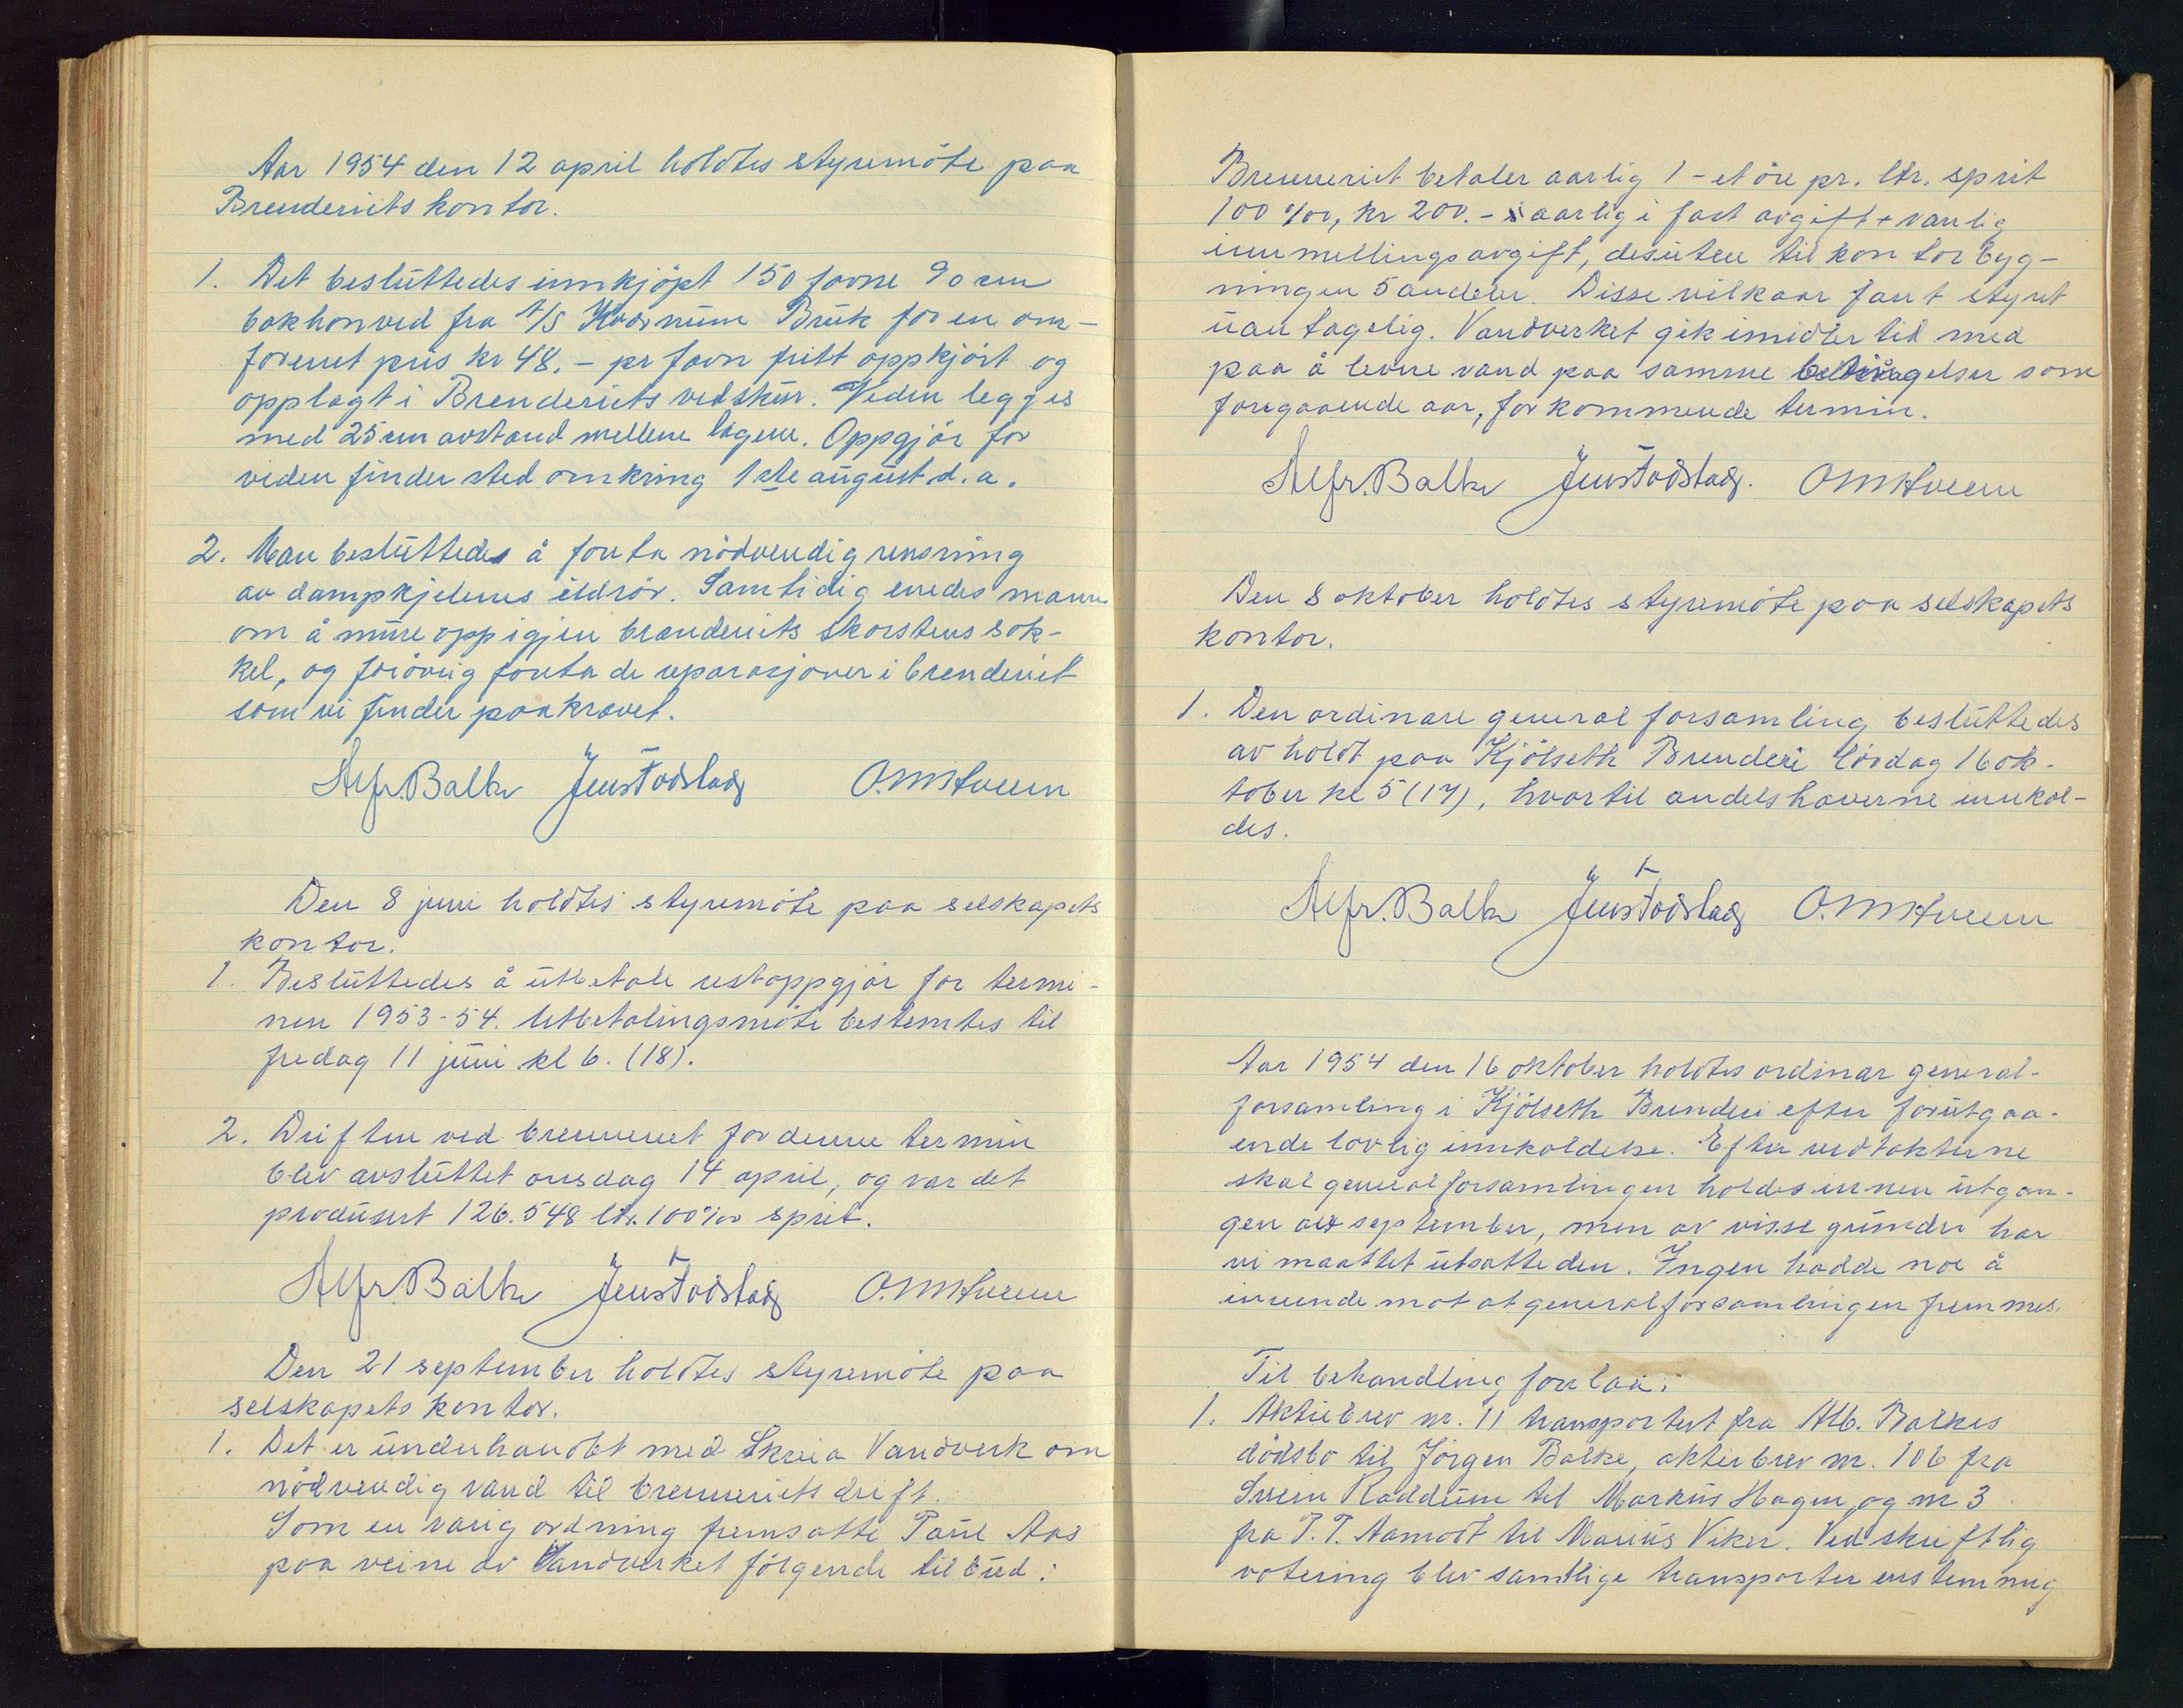 Aar 1954 den 12 april holdtes styremöte paa
Brenderiets kontor.
1. Det besluttedes innkjöpt 150 favne 90 cm
bakhonved fra A/S Kværnum Bruk for en om-
forenet pris kr 48.- pr favn fritt oppkjört og
opplagt i Brenderiets vedskur. Veden legges
med 25 cm avstand mellem lagene. Oppgjör for
veden finder sted omkring 1ste august d.a.
2. Man besluttedes å foreta nödvendig rensning
av dampkjelenes ildrör. Samtidig enedes mann
om å mure opp igjen brænderiets skorstens sok-
kel, og forövrig foreta de reparasjoner i brenderiet
som vi finder paakrævet.
Alfr. Balke Jens Todstad O.M. Hveem
Den 8 juni holdtes styremöte paa selskapets
kontor.
1. Besluttedes å utbetale restoppgjör for termi-
nen 1953-54. Utbetalingsmöte bestemtes til
fredag 11 juni kl 6. (18).
2. Driften ved brenneriet for denne termin
blev avsluttet onsdag 14 april, og var det
produsert 126.548 ltr. 100%oo sprit.
Alfr. Balke Jens Todstad O.M. Hveem
Den 21 september holdtes styremöte paa
selskapets kontor.
1. Det er underhandlet med Skreia Vandverk om
nödvendig vand til brenneriets drift.
Som en varig ordning fremsatte Paul Aas
paa veine av Vandverket fölgende tilbud:
Brenneriet betaler aarlig 1 - et öre pr. ltr. sprit
100 %oo, kr 200.- aarlig i fast avgift + vanlig
innmellingsavgift, desuten til kontorbyg-
ningen 5 andeler. Disse vilkaar fant styret
uantagelig. Vandverket gik imidlertid med
paa å levere vand paa samme betingelser som
foregaaende aar, for kommende termin.
Alfr. Balke Jens Todstad. O.M. Hveem
Den 8 oktober holdtes styremöte paa selskapets
kontor.
1. Den ordinære generalforsamling besluttedes
av holdt paa Kjölseth Brenderi lördag 16 ok-
tober kl 5 (17), hvortil andelshaverne innkal-
des.
Alfr. Balke Jens Todstad O.M. Hveem
Aar 1954 den 16 oktober holdtes ordinær general-
forsamling i Kjölseth Brenderi efter forutgaa-
ende lovlig innkaldelse. Efter vedtektene
skal generalforsamlingen holdes innen utgan-
gen av september, men av visse grunder har
vi maattet utsætte den. Ingen hadde noe å
invende mot at generalforsamlingen fremmes.
Til behandling forelaa:
1. Aktiebrev nr. 11 transportert fra Alb. Balkes
dödsbo til Jörgen Balke, aktiebrev nr. 106 fra
Svein Raddum til Markus Hagen, og nr 3
fra P.T. Aamodt til Marius Viker. Ved skriftlig
votering blev samtlige transporter enstemmig